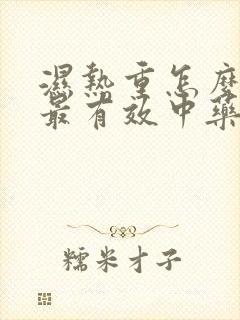 濕熱重怎麼
最有效中藥
糯米才子